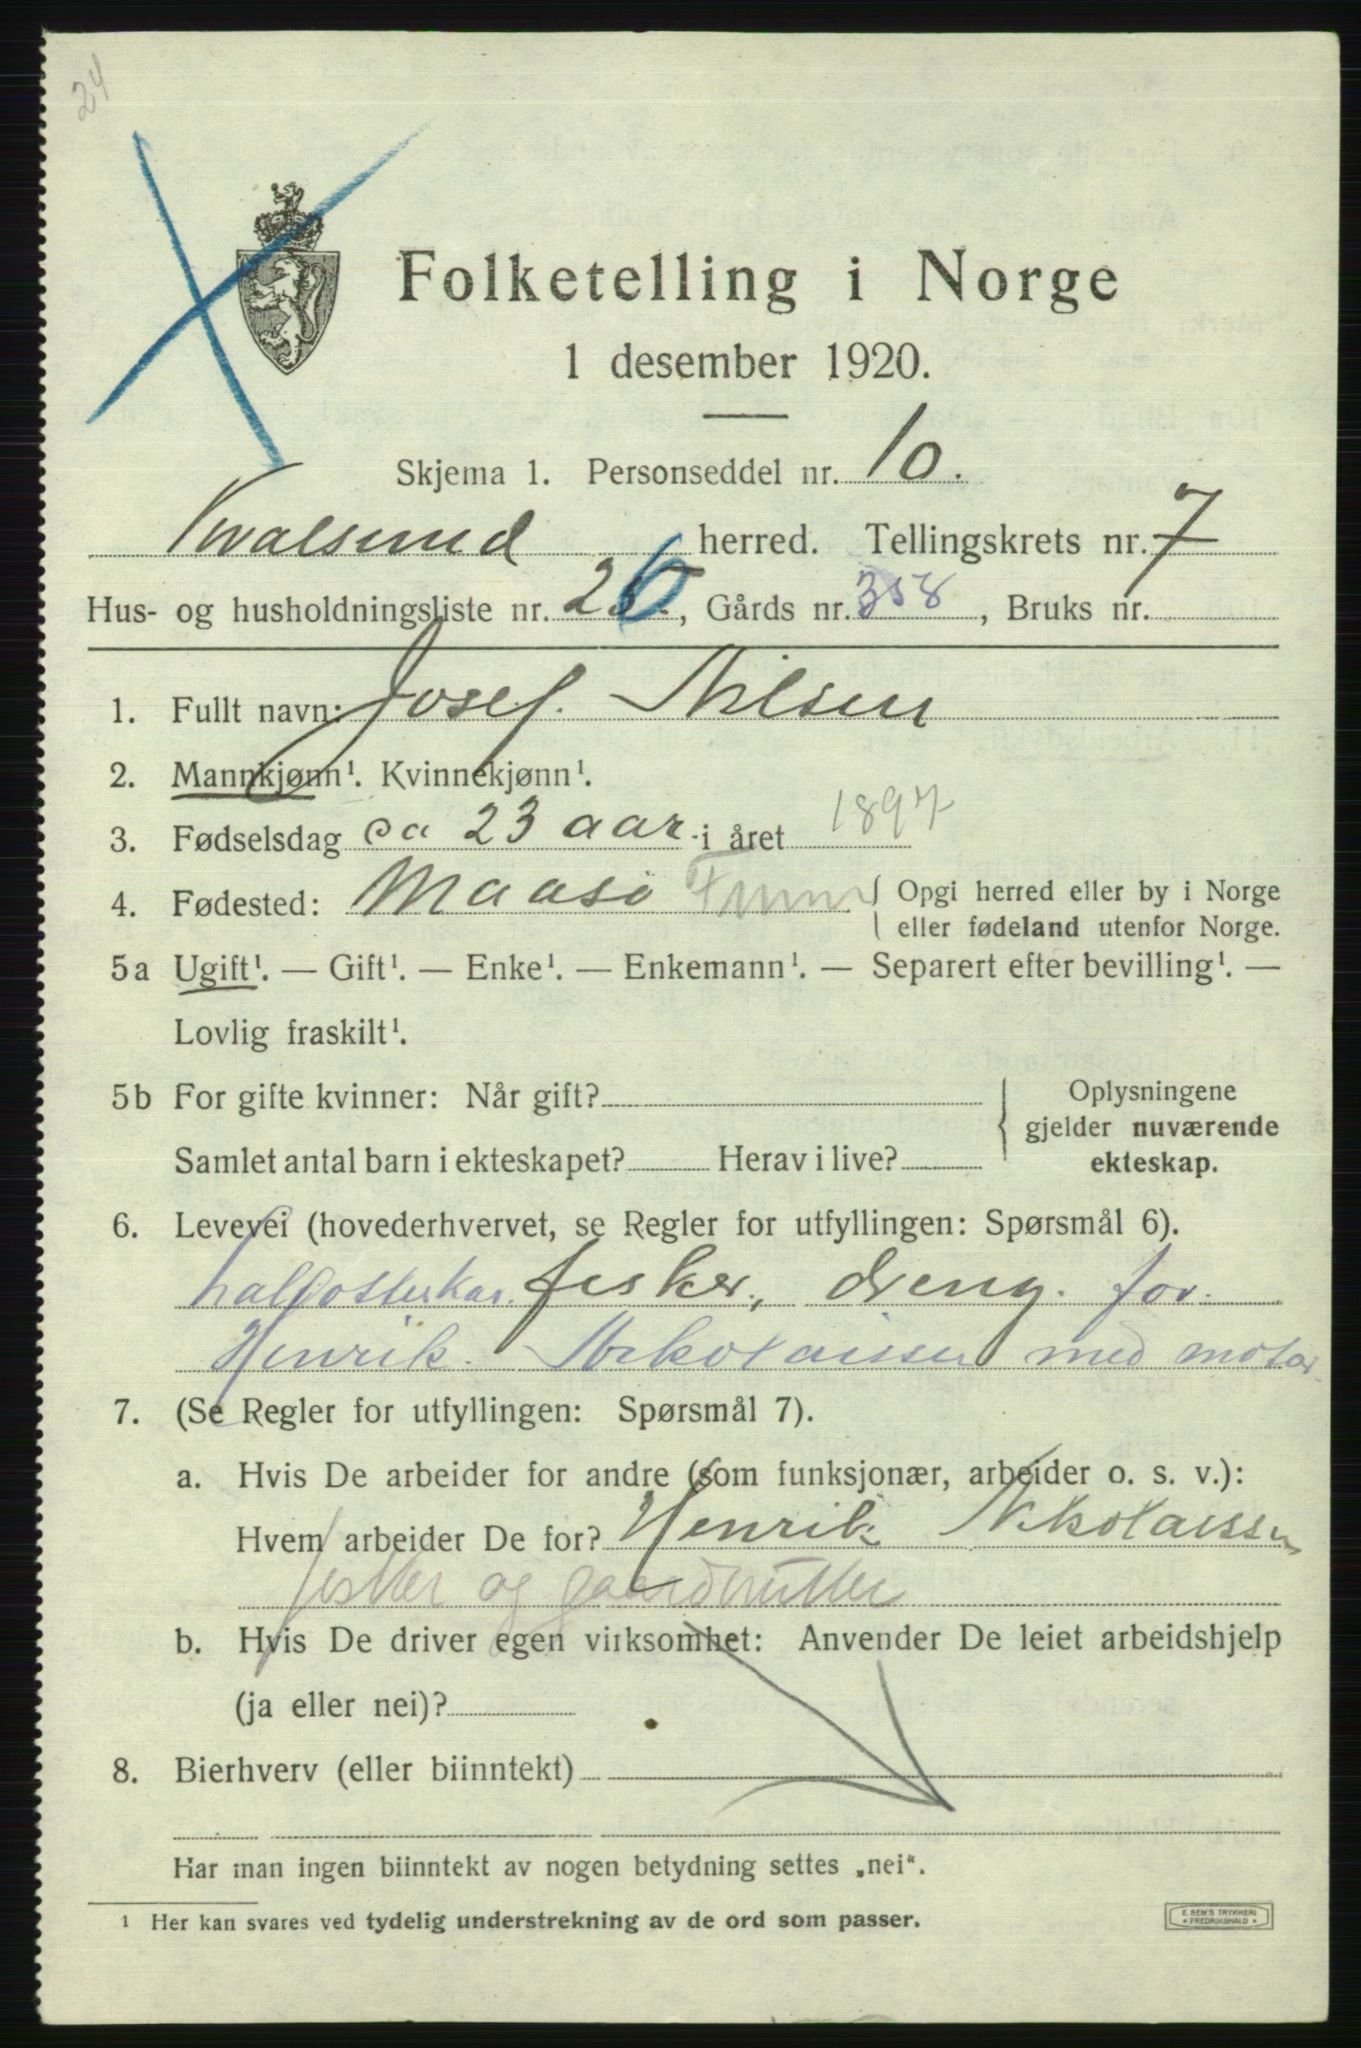 24
Folketelling i Norge
1 desember 1920.
Skjema 1. Personseddel nr. 10.
Kvalsund herred. Tellingskrets nr. 7
Hus- og husholdningsliste nr. 26, Gårds nr. 358, Bruks nr.
1. Fullt navn: Josef. Nilsen
2. Mannkjønn¹. Kvinnekjønn¹.
3. Fødselsdag ca 23 aar i året 1897
4. Fødested: Maasø Finnm { Opgi herred eller by i Norge
eller fødeland utenfor Norge.
5a Ugift¹. — Gift¹. — Enke¹. — Enkemann¹. — Separert efter bevilling¹. —
Lovlig fraskilt¹.
5b For gifte kvinner: Når gift? { Oplysningene
gjelder nuværende
Samlet antal barn i ekteskapet? Herav i live? ekteskap.
6. Levevei (hovederhvervet, se Regler for utfyllingen: Spørsmål 6).
fisker, dreng. for
Henrik. Nikolaissen med motor
7. (Se Regler for utfyllingen: Spørsmål 7).
a. Hvis De arbeider for andre (som funksjonær, arbeider o. s. v.):
Hvem arbeider De for? Henrik Nikolaissen
fisker og gaardbruker
b. Hvis De driver egen virksomhet: Anvender De leiet arbeidshjelp
(ja eller nei)?
8. Bierhverv (eller biinntekt)
Har man ingen biinntekt av nogen betydning settes „nei“.
¹ Her kan svares ved tydelig understrekning av de ord som passer.
E. SEM'S TRYKKERI
* FREDRIKSHALD *